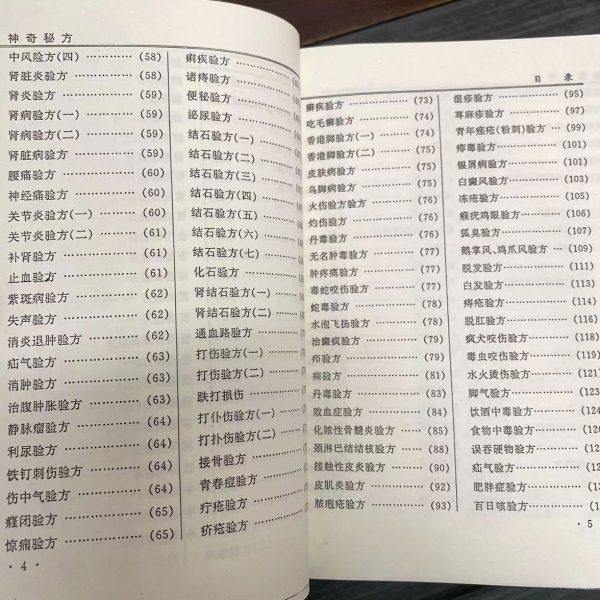 神奇秘方
中风验方(四) ………… (58)
肾脏炎验方 ………… (58)
肾炎验方 …………… (59)
肾病验方(一) ……… (59)
肾病验方(二) ……… (59)
肾脏病验方 ………… (59)
腰痛验方 …………… (60)
神经痛验方 ………… (60)
关节炎验方(一) …… (60)
关节炎验方(二) …… (61)
补肾验方 …………… (61)
止血验方 …………… (61)
紫斑病验方 ………… (62)
失声验方 …………… (62)
消炎退肿验方 ……… (62)
疝气验方 …………… (63)
消肿验方 …………… (63)
治腹肿胀验方 ……… (63)
静脉瘤验方 ………… (64)
利尿验方 …………… (64)
铁钉刺伤验方 ……… (64)
伤中气验方 ………… (64)
癃闭验方 …………… (65)
惊痫验方 …………… (65)
· 4 ·
痢疾验方 ……………
诸痔验方 ……………
便秘验方 ……………
泌尿验方 ……………
结石验方(一) ………
结石验方(二) ………
结石验方(三) ………
结石验方(四) ………
结石验方(五) ………
结石验方(六) ………
结石验方(七) ………
化石验方 ……………
肾结石验方(一) ……
肾结石验方(二) ……
通血路验方 …………
打伤验方(一) ………
打伤验方(二) ………
跌打损伤 ……………
打仆伤验方(一) ……
打扑伤验方(二) ……
接骨验方 ……………
青春痘验方 …………
疔疮验方 ……………
疥疮验方 ……………
目 录
癣疾验方 …………… (73)
吃毛癣验方 ………… (74)
香港脚验方(一) …… (74)
香港脚验方(二) …… (75)
皮肤病验方 ………… (75)
乌脚病验方 ………… (75)
火伤验方验方 ……… (76)
灼伤验方 …………… (76)
丹毒验方 …………… (76)
无名肿毒验方 ……… (77)
肿疼痛验方 ………… (77)
毒蛇咬伤验方 ……… (77)
蛇毒验方 …………… (78)
水泡飞扬验方 ……… (78)
治癫疯验方 ………… (79)
疖验方 ……………… (79)
痈验方 ……………… (81)
丹毒验方 …………… (83)
败血症验方 ………… (84)
化脓性骨髓炎验方 … (85)
颈淋巴结结核验方 … (88)
接触性皮炎验方 …… (90)
皮肌炎验方 ………… (92)
脓疱疮验方 ………… (93)
湿疹验方 …………… (95)
荨麻疹验方 ………… (97)
青年痤疮(粉刺)验方 … (99)
痔毒验方 …………… (101)
银屑病验方 ………… (101)
白癜风验方 ………… (103)
冻疮验方 …………… (105)
瘊疣鸡眼验方 ……… (106)
狐臭验方 …………… (107)
鹅掌风、鸡爪风验方 … (109)
脱发验方 …………… (111)
白发验方 …………… (113)
痔疮验方 …………… (114)
脱肛验方 …………… (116)
疯犬咬伤验方 ……… (118)
毒虫咬伤验方 ……… (119)
水火烫伤验方 ……… (121)
脚气验方 …………… (123)
饮酒中毒验方 ……… (124)
食物中毒验方 ……… (12
误吞硬物验方 ……… (12
疝气验方 …………… (12
肥胖症验方 ………… (12
百日咳验方 ………… (1
· 5